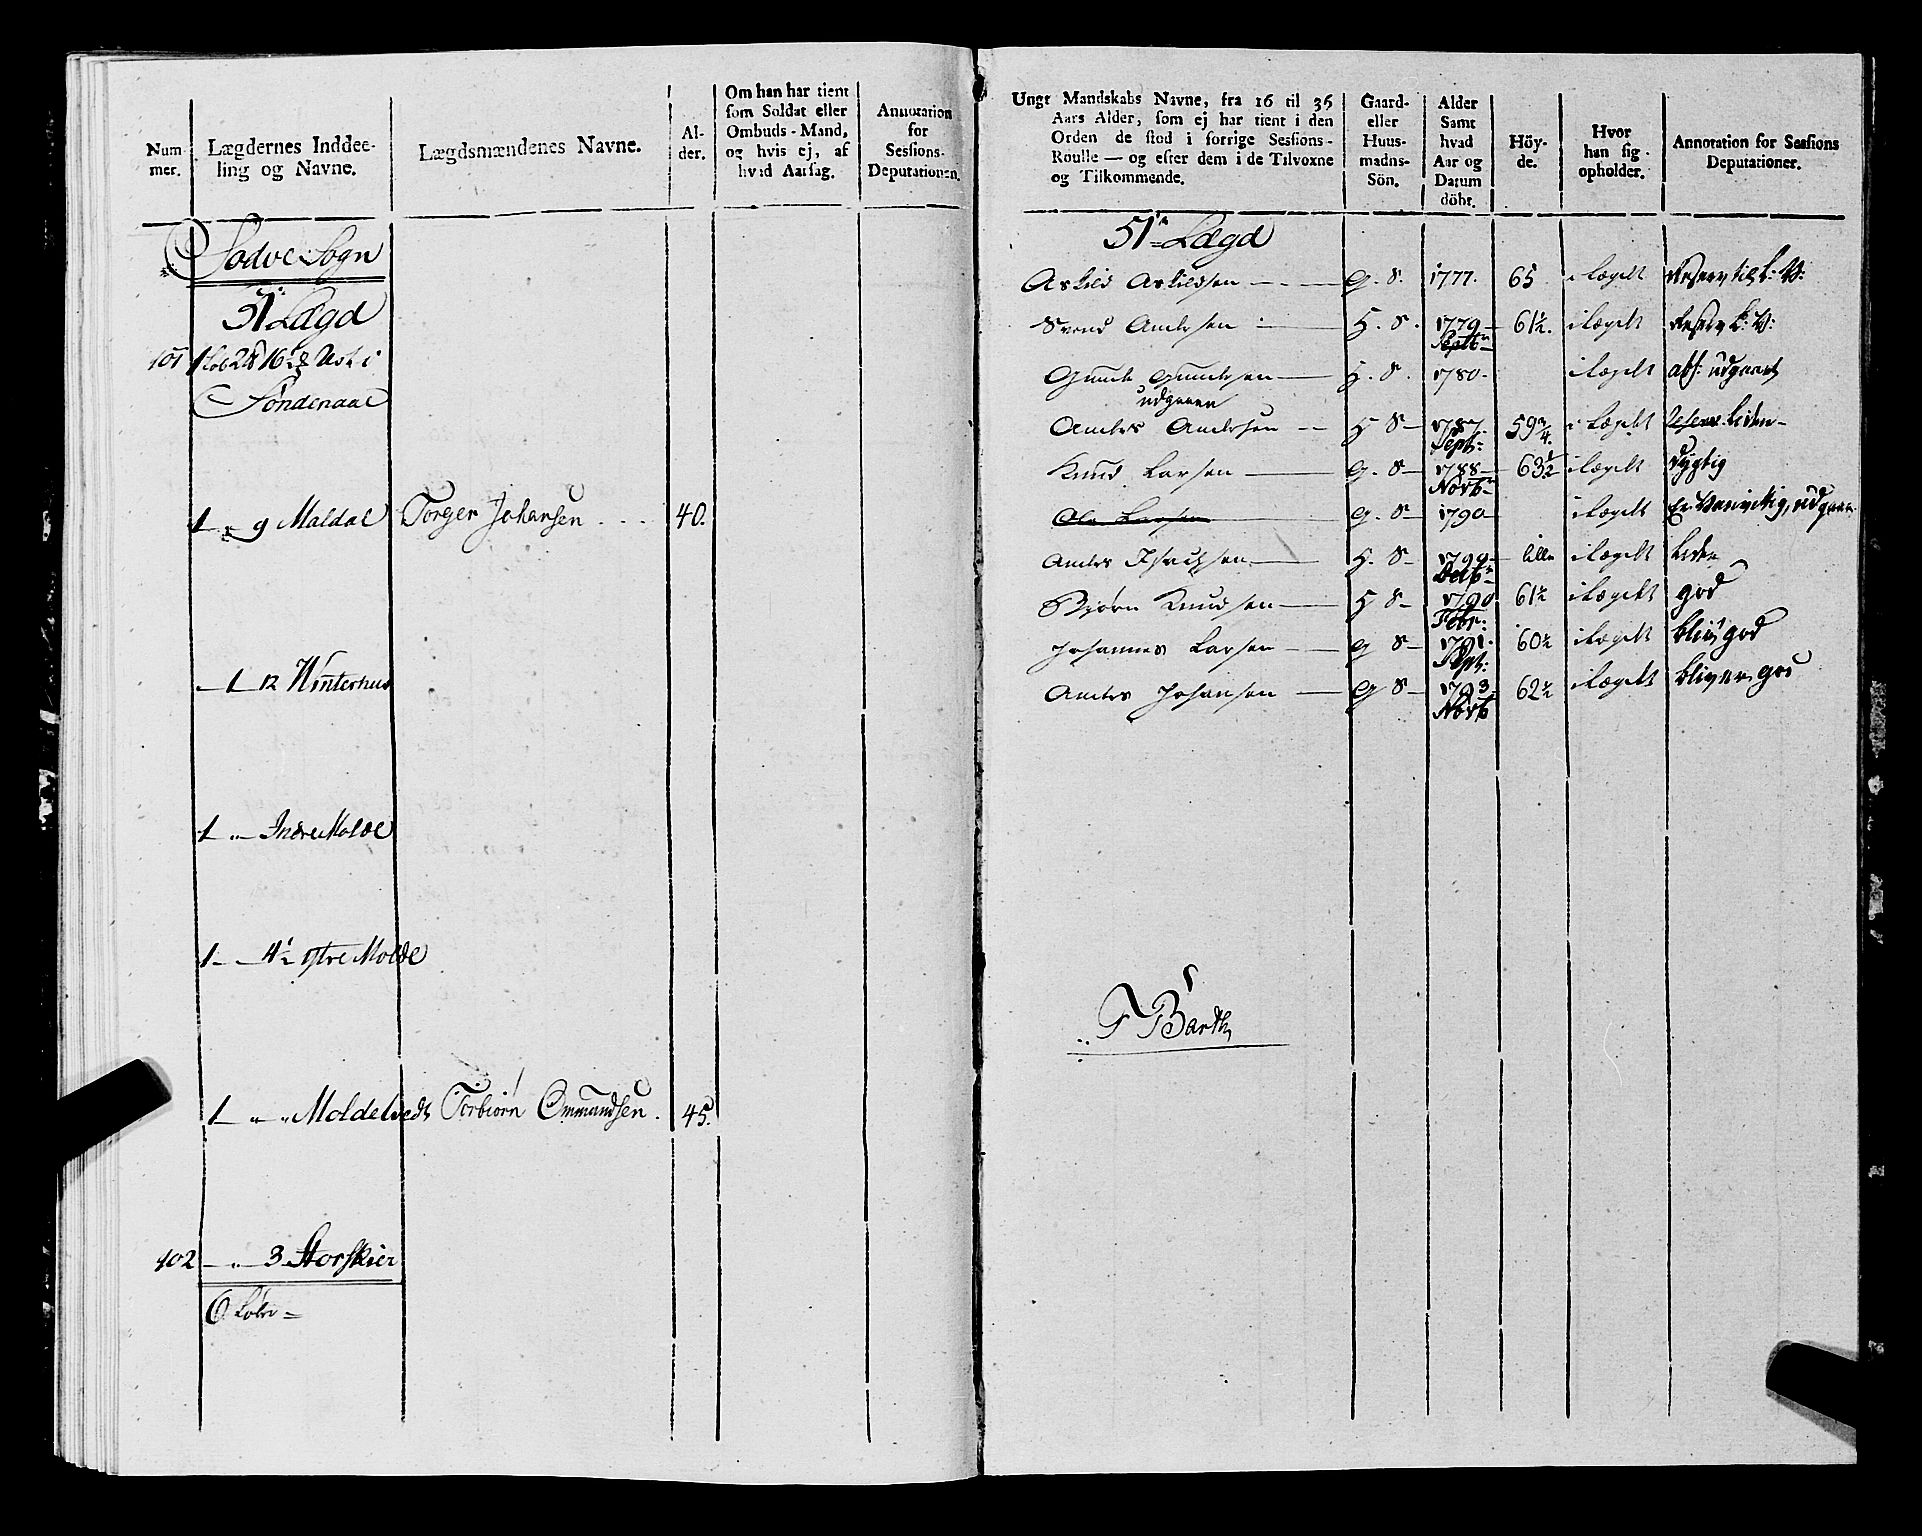 Num-
mer.
Lægdernes Inddee-
ling og Navne.
Lægdsmændenes Navne.
Al-
der.
Om han har tient
som Soldat eller
Ombuds-Mand,
og hvis ej, af
hvad Aarsag.
Annotation
for
Sessions-
Deputationen.
Sodve Sogn
51 Lægd
101 1 Lob 2 16 i
Søndenaae
1 " 9 Maldal Torger Johansen 40.
1 12 Winterhus
1 " Indre Molde
1 4½ ytre Molde
1 " " Moldetvedt Torbiørn Ommundsen. 45.
102 " 3 Storskier
6 Løber
Ungt Mandskabs Navne, fra 16 til 36
Aars Alder, som ej har tient i den
Orden de stod i forrige Sessions-
Roulle — og efter dem i de Tilvoxne
og Tilkommende.
Gaard-
eller
Huus-
mands-
Sön.
Alder
Samt
hvad
Aar og
Datum
döbt.
Höy-
de.
Hvor
han sig
opholder.
Annotation for Sessions
Deputationer.
51 Lægd
Askild Askildsen G. S. 1777. 65 i Lægdt Reserv til L: V:
Svend Andersen H. S. 1779 Septbr 61½. i Lægdt Reserv L: V:
Gunde Gundersen H. S. 1780 i Lægdt udgaaet
udgaaer
Anders Andersen H S 1787 Sept: 59¾. i Lægdt Liden
Knud Larsen G. S 1788 Novbr 63½ i Lægdt dygtig
Ole Larsen G. S 1790 i Lægdt Er Vanvittig, udgaaer
Anders Isachsen H. S lille i Lægdt Liden
Bjørn Knudsen H S 1790 Febr: 61½ i Lægdt god
Johannes Larsen G S 1791 Sept: 60½ i Lægdt bliv god
Anders Johansen G S 1793 Novb 62½ i Lægdt bliver god
F Barth